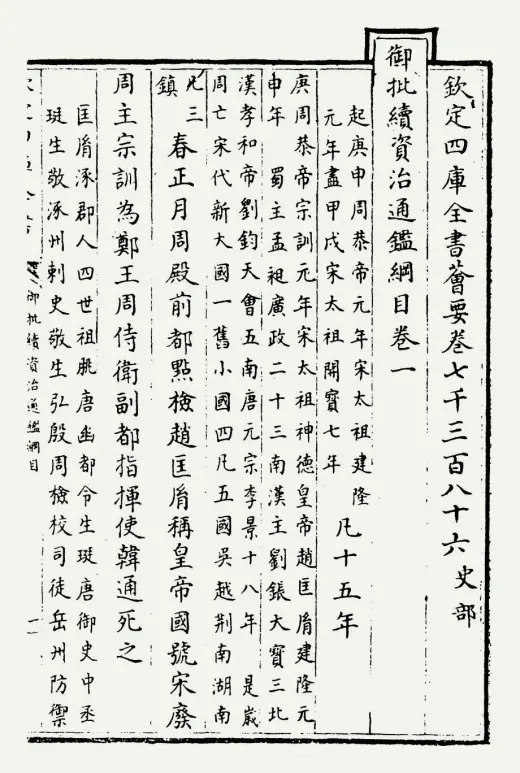 欽定四庫全書薈要卷七千三百八十六 史部
御批續資治通鑑綱目卷一
起庚申周恭帝元年宋太祖建隆
元年盡甲戌宋太祖開寶七年
凡十五年
庚周恭帝宗訓元年宋太祖神德皇帝趙匡胤建隆元
申年 蜀主孟昶廣政二十三南漢主劉鋹大寶三北
漢孝和帝劉鈞天會五南唐元宗李景十八年 是歲
周亡宋代新大國一舊小國四凡五國吳越荆南湖南
凡三
鎮
春正月周殿前都點檢趙匡胤稱皇帝國號宋廢
周主宗訓為鄭王周侍衛副都指揮使韓通死之
匡胤涿郡人四世祖朓唐幽都令生珽唐御史中丞
珽生敬涿州刺史敬生弘殷周檢校司徒岳州防禦
御批續資治通鑑綱目
一